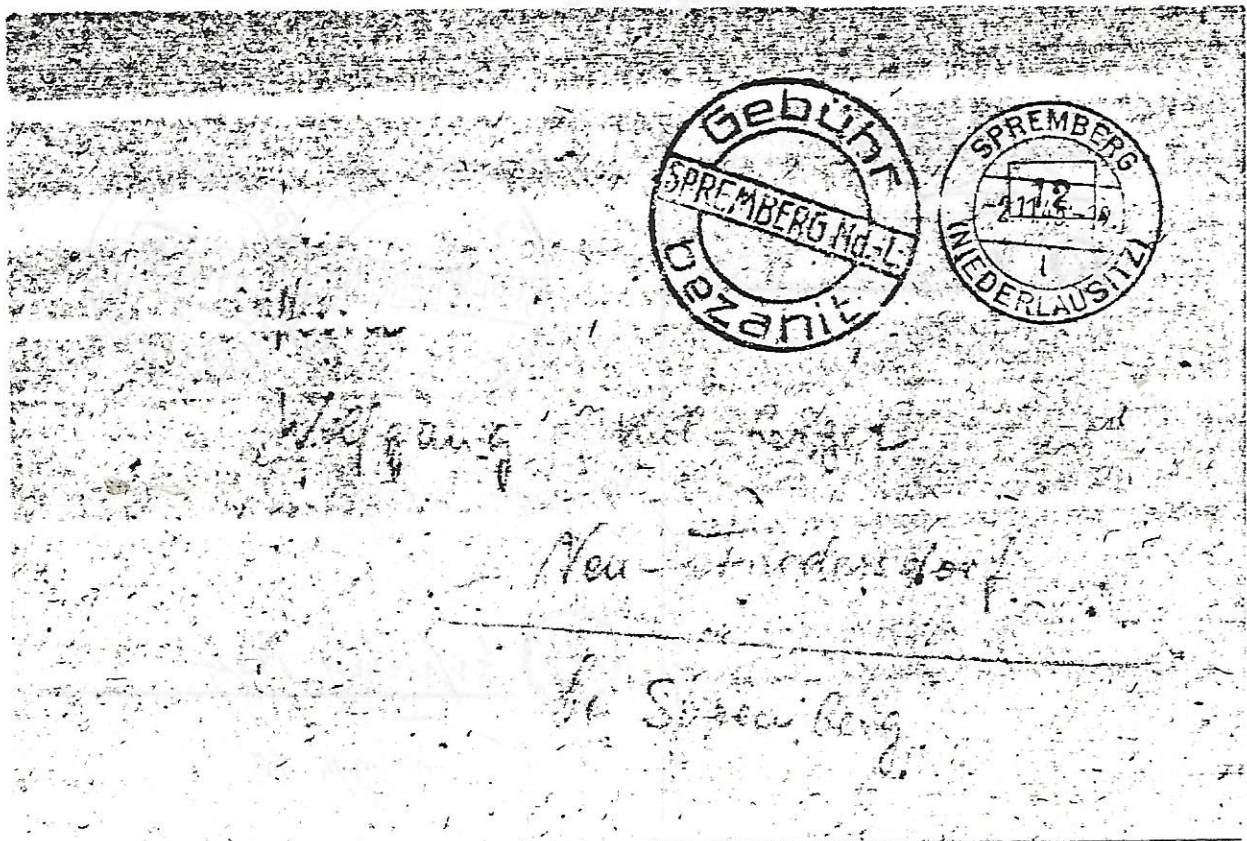 Gebühr
SPREMBERG Nd.-L.
bezahlt
SPREMBERG
12
-2.11.45-
(NIEDERLAUSITZ)
Wolfgang
Neu-Friedersdorf
bei Spremberg